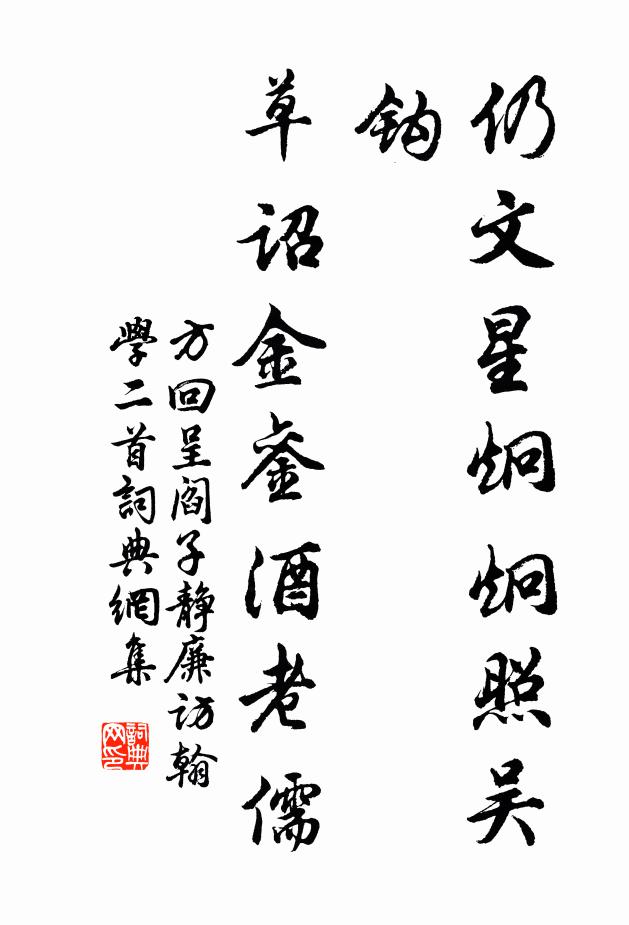 仍文星炯炯照吴
鈎
草詔金銮酒老儒
方回呈阎子静廉访翰
學二首詞典網集
詞典网印